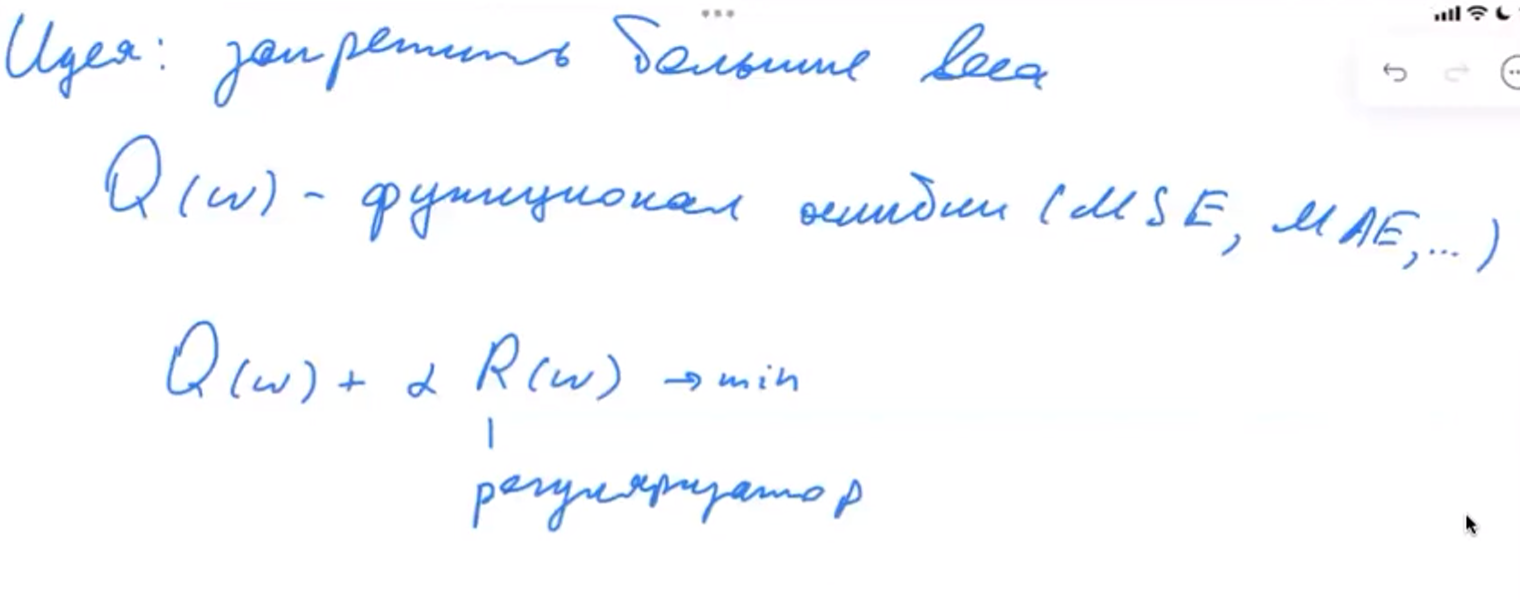 Идея: запретить большие веса
Q(w) - функционал ошибки (MSE, MAE,...)
Q(w) + α R(w) → min
регуляризатор